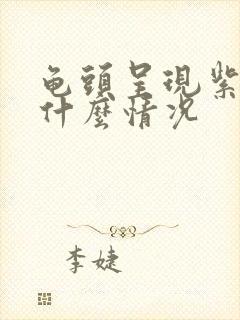 龟頭呈現紫
什麼情况
李婕